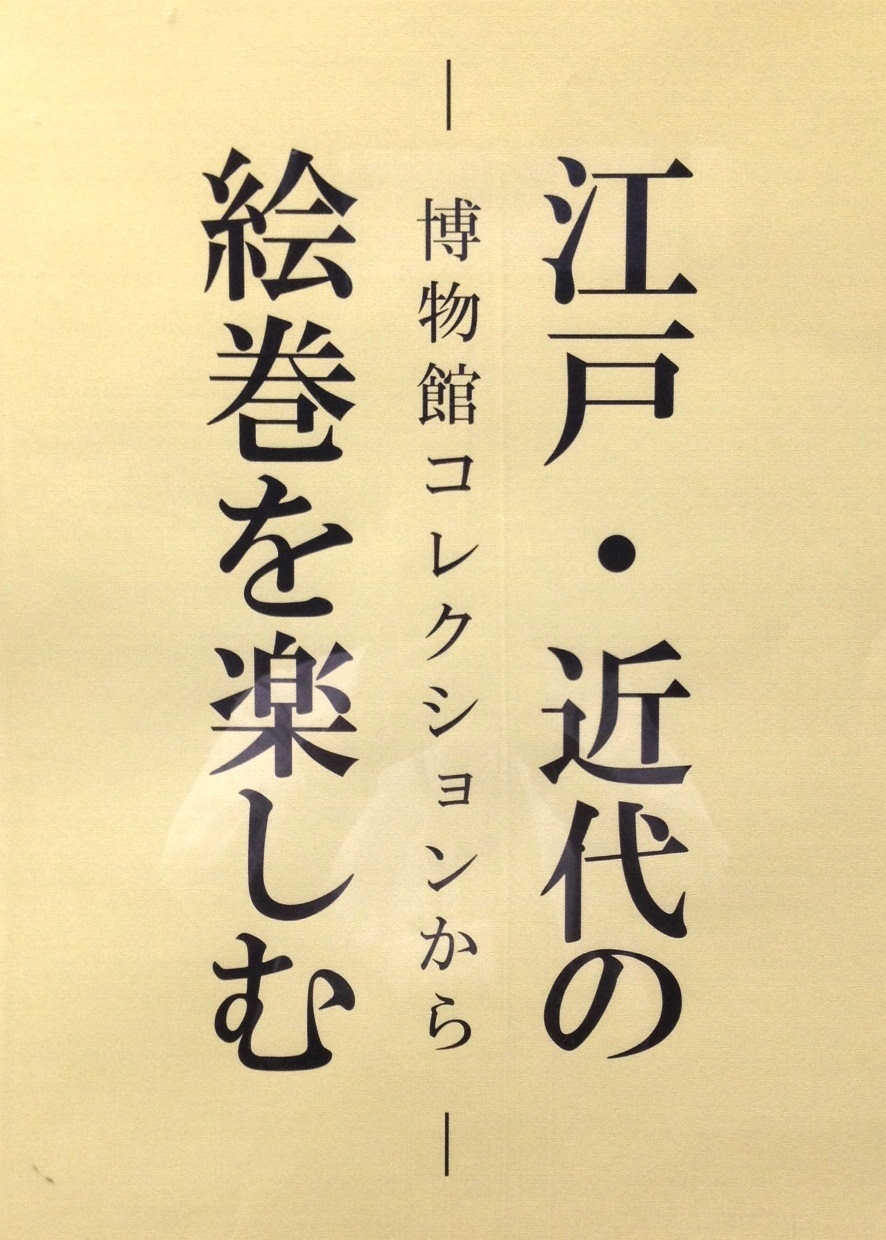 江戸・近代の
―博物館コレクションから―
絵巻を楽しむ